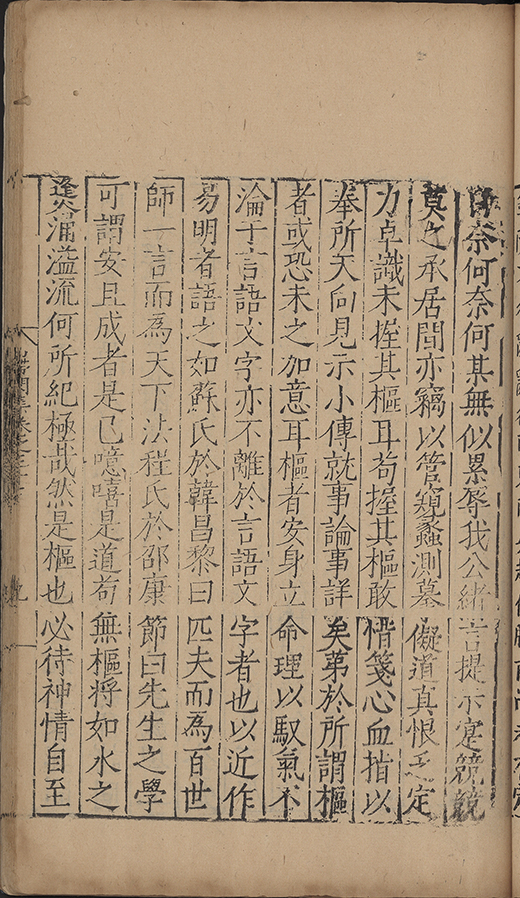 自奈何奈何某無似累辱我公緒言提示寔兢兢
莫之承居閒亦竊以管窺蠡測墓儗道真恨乏定
力卓識未握其樞耳苟握其樞敢惜箋心血指以
奉所天向見示小傳就事論事詳矣第於所謂樞
者或恐未之加意耳樞者安身立命理以馭氣不
淪于言語文字亦不離於言語文字者也以近作
易明者語之如蘇氏於韓昌黎曰匹夫而為百世
師一言而為天下法程氏於邵康節曰先生之學
可謂安且成者是已噫嘻是道苟無樞將如水之
逢谷涌溢流何所紀極哉然是樞也必待神情自至
九